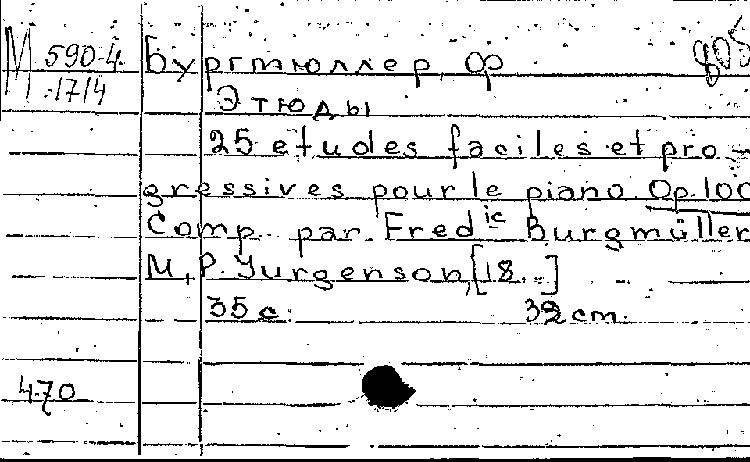 М 590-4 / 1714
805
Бургмюллер, Фр
Этюды
25 etudes faciles et pro-
gressives pour le piano Op.100
Comp. par. Fred ic Burgmüller
M., P. Jurgenson, [18..]
35 с. 32 cm.
470